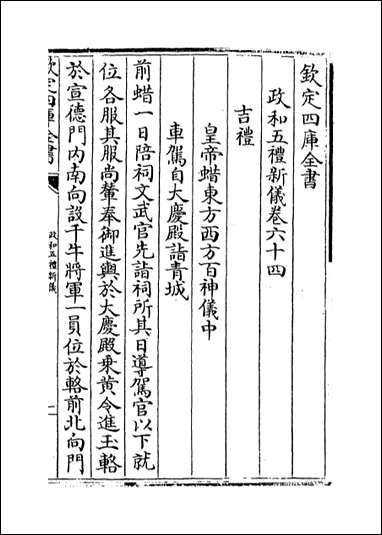 欽定四庫全書
政和五禮新儀卷六十四
吉禮
皇帝蜡東方西方百神儀中
車駕自大慶殿詣青城
前蜡一日陪祠文武官先詣祠所其日導駕官以下就
位各服其服尚輦奉御進輿於大慶殿乘黄令進玉輅
於宣德門内南向設千牛將軍一員位於輅前北向門
欽定四庫全書
政和五禮新儀